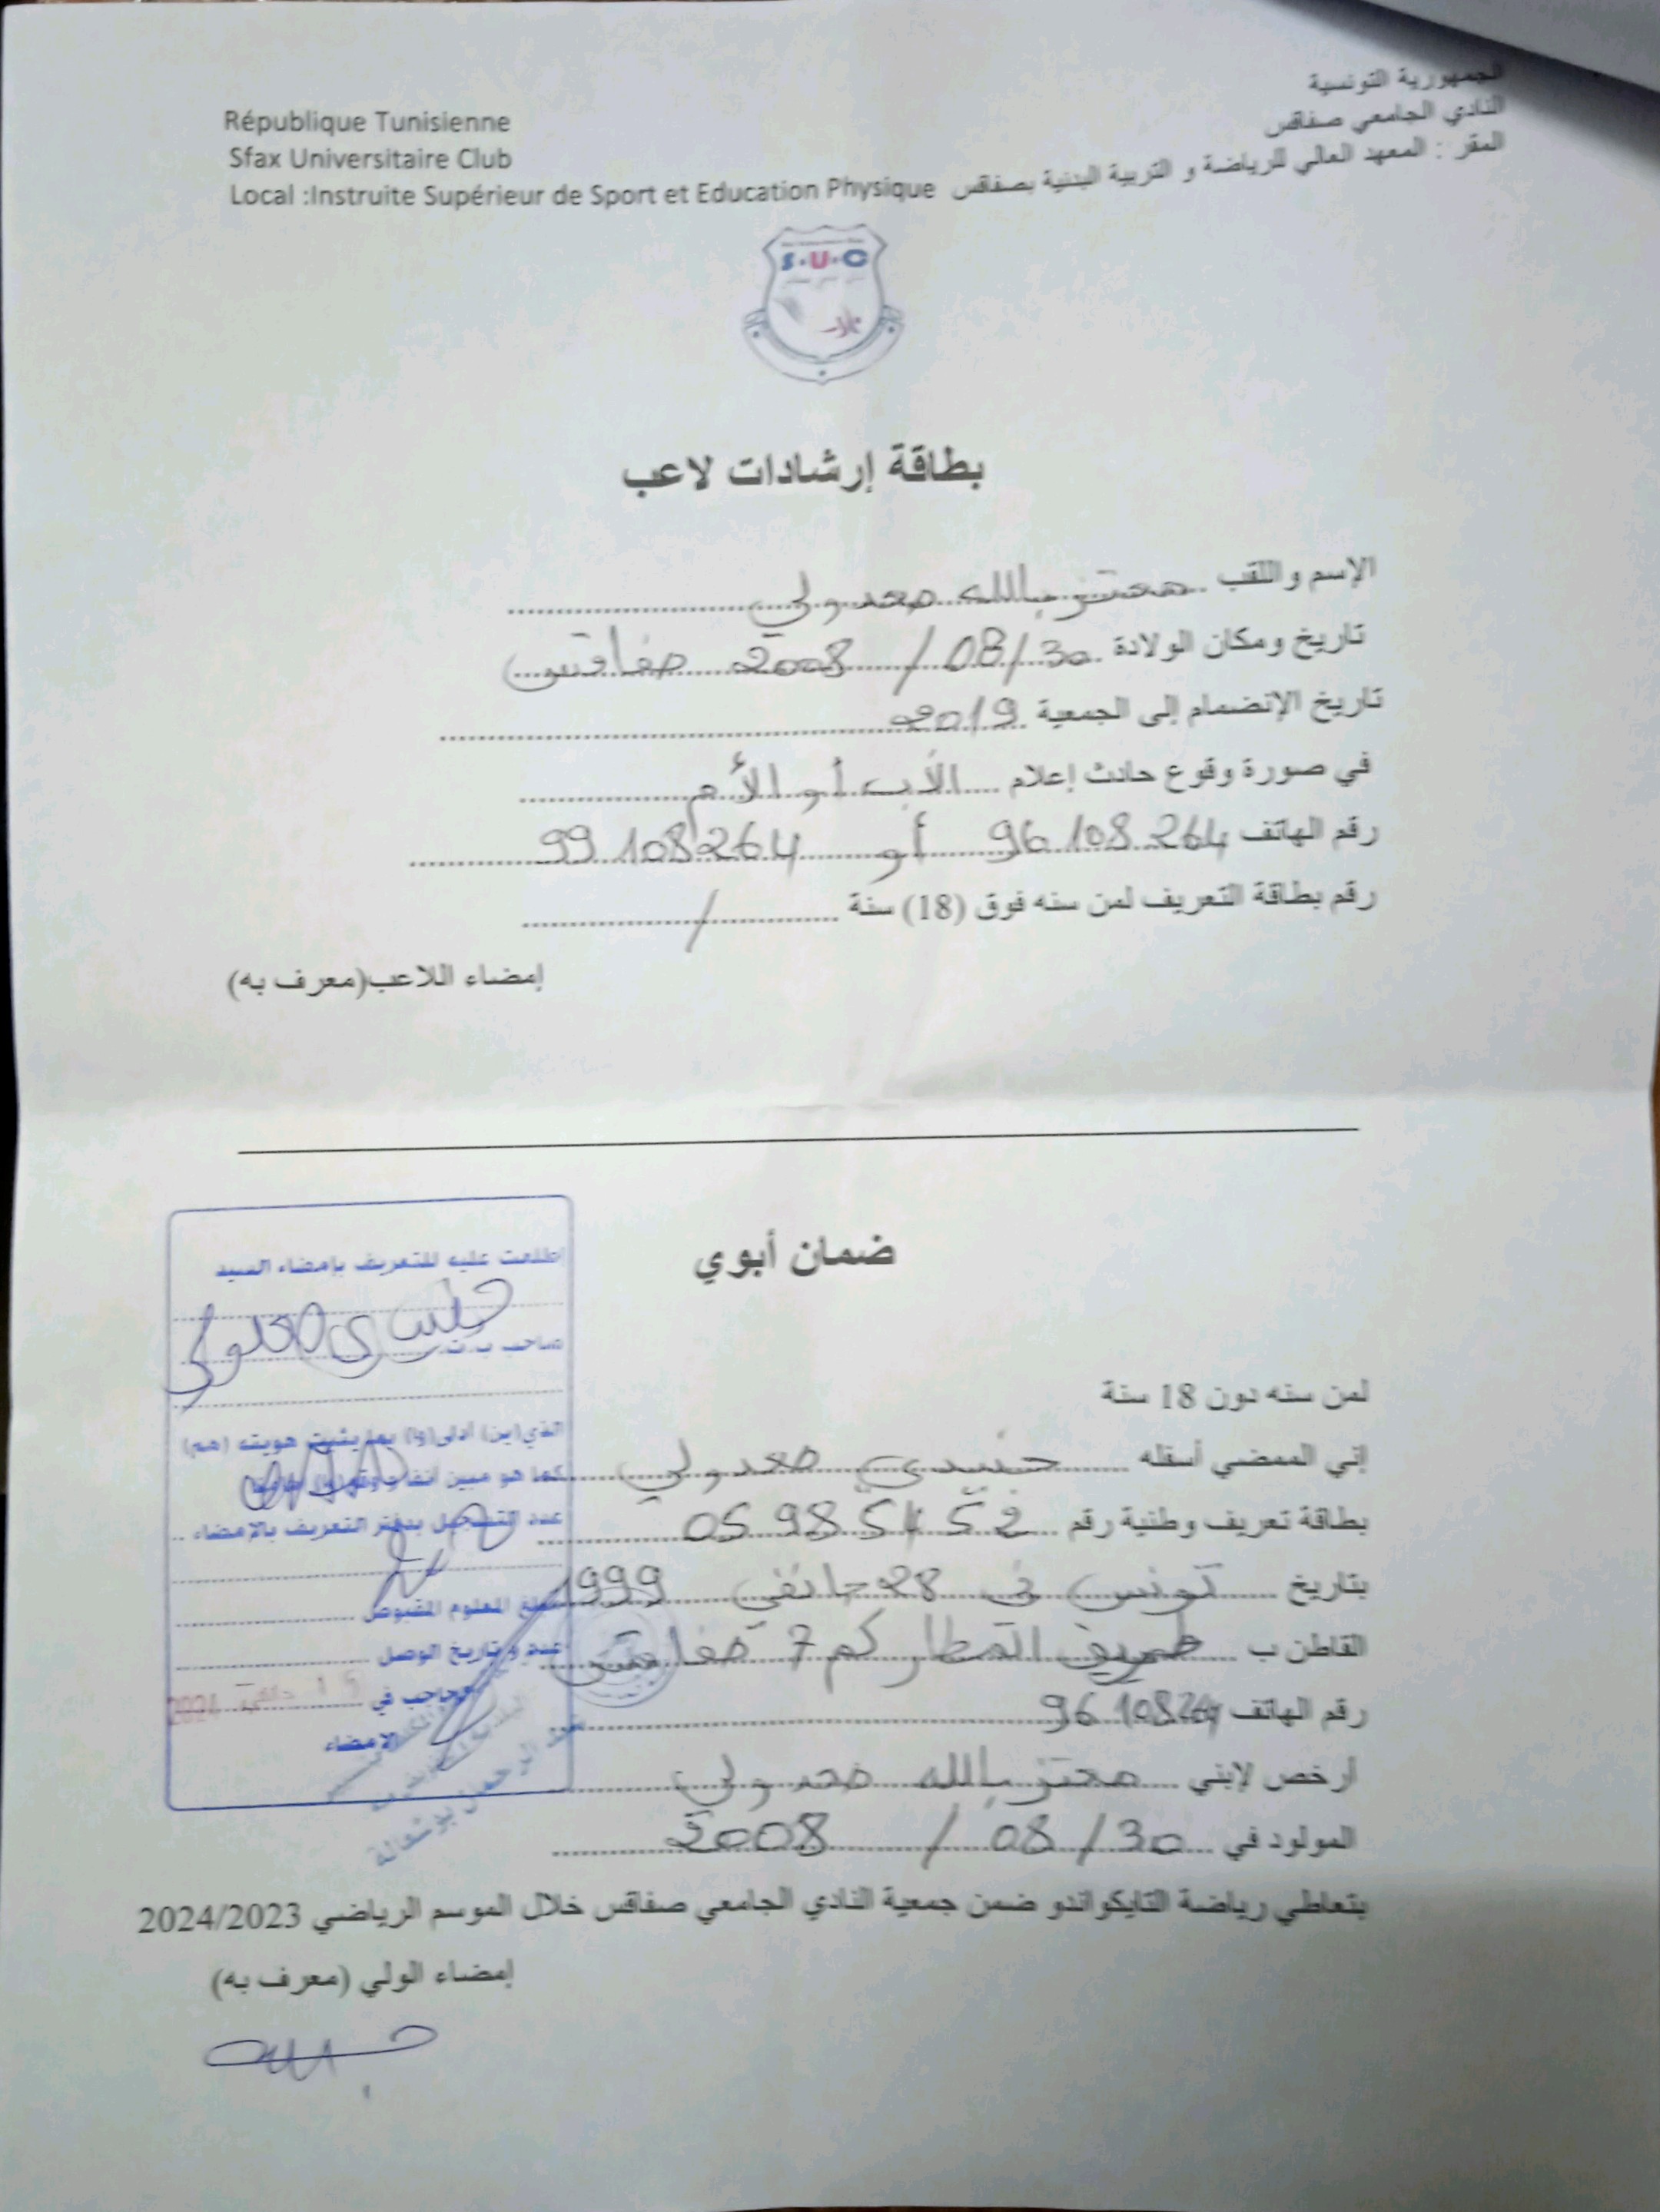 الجمهورية التونسية
النادي الجامعي صفاقس
المقر : المعهد العالي للرياضة و التربية البدنية بصفاقس
République Tunisienne
Sfax Universitaire Club
Local :Instruite Supérieur de Sport et Education Physique
S.U.C
بطاقة إرشادات لاعب
الإسم واللقب معتز بالله معدولي
تاريخ ومكان الولادة 30/ 08 / 2008 صفاقس
تاريخ الإنضمام إلى الجمعية 2019
في صورة وقوع حادث إعلام الأب أو الأم
رقم الهاتف 96 108 264 أو 99 108 264
رقم بطاقة التعريف لمن سنه فوق (18) سنة /
إمضاء اللاعب(معرف به)
ضمان أبوي
لمن سنه دون 18 سنة
إني الممضي أسفله معدولي
بطاقة تعريف وطنية رقم
بتاريخ تونس في 28 جانفي 1999
القاطن ب طريق المطار كم 7 صفاقس
رقم الهاتف 96 108264
أرخص لإبني معتز بالله معدولي
المولود في 30/ 08 / 2008
بتعاطي رياضة التايكواندو ضمن جمعية النادي الجامعي صفاقس خلال الموسم الرياضي 2024/2023
إمضاء الولي (معرف به)
اطلعت عليه للتعريف بإمضاء السيد
صاحب ب.ت
الذي(ين) أدلى(وا) بما يثبت هويته (هم)
كما هو مبين أنفا
عدد التسجيل بدفتر التعريف بالإمضاء
مبلغ المعلوم المقبوض
عدد وتاريخ الوصل
في
2024
الإمضاء